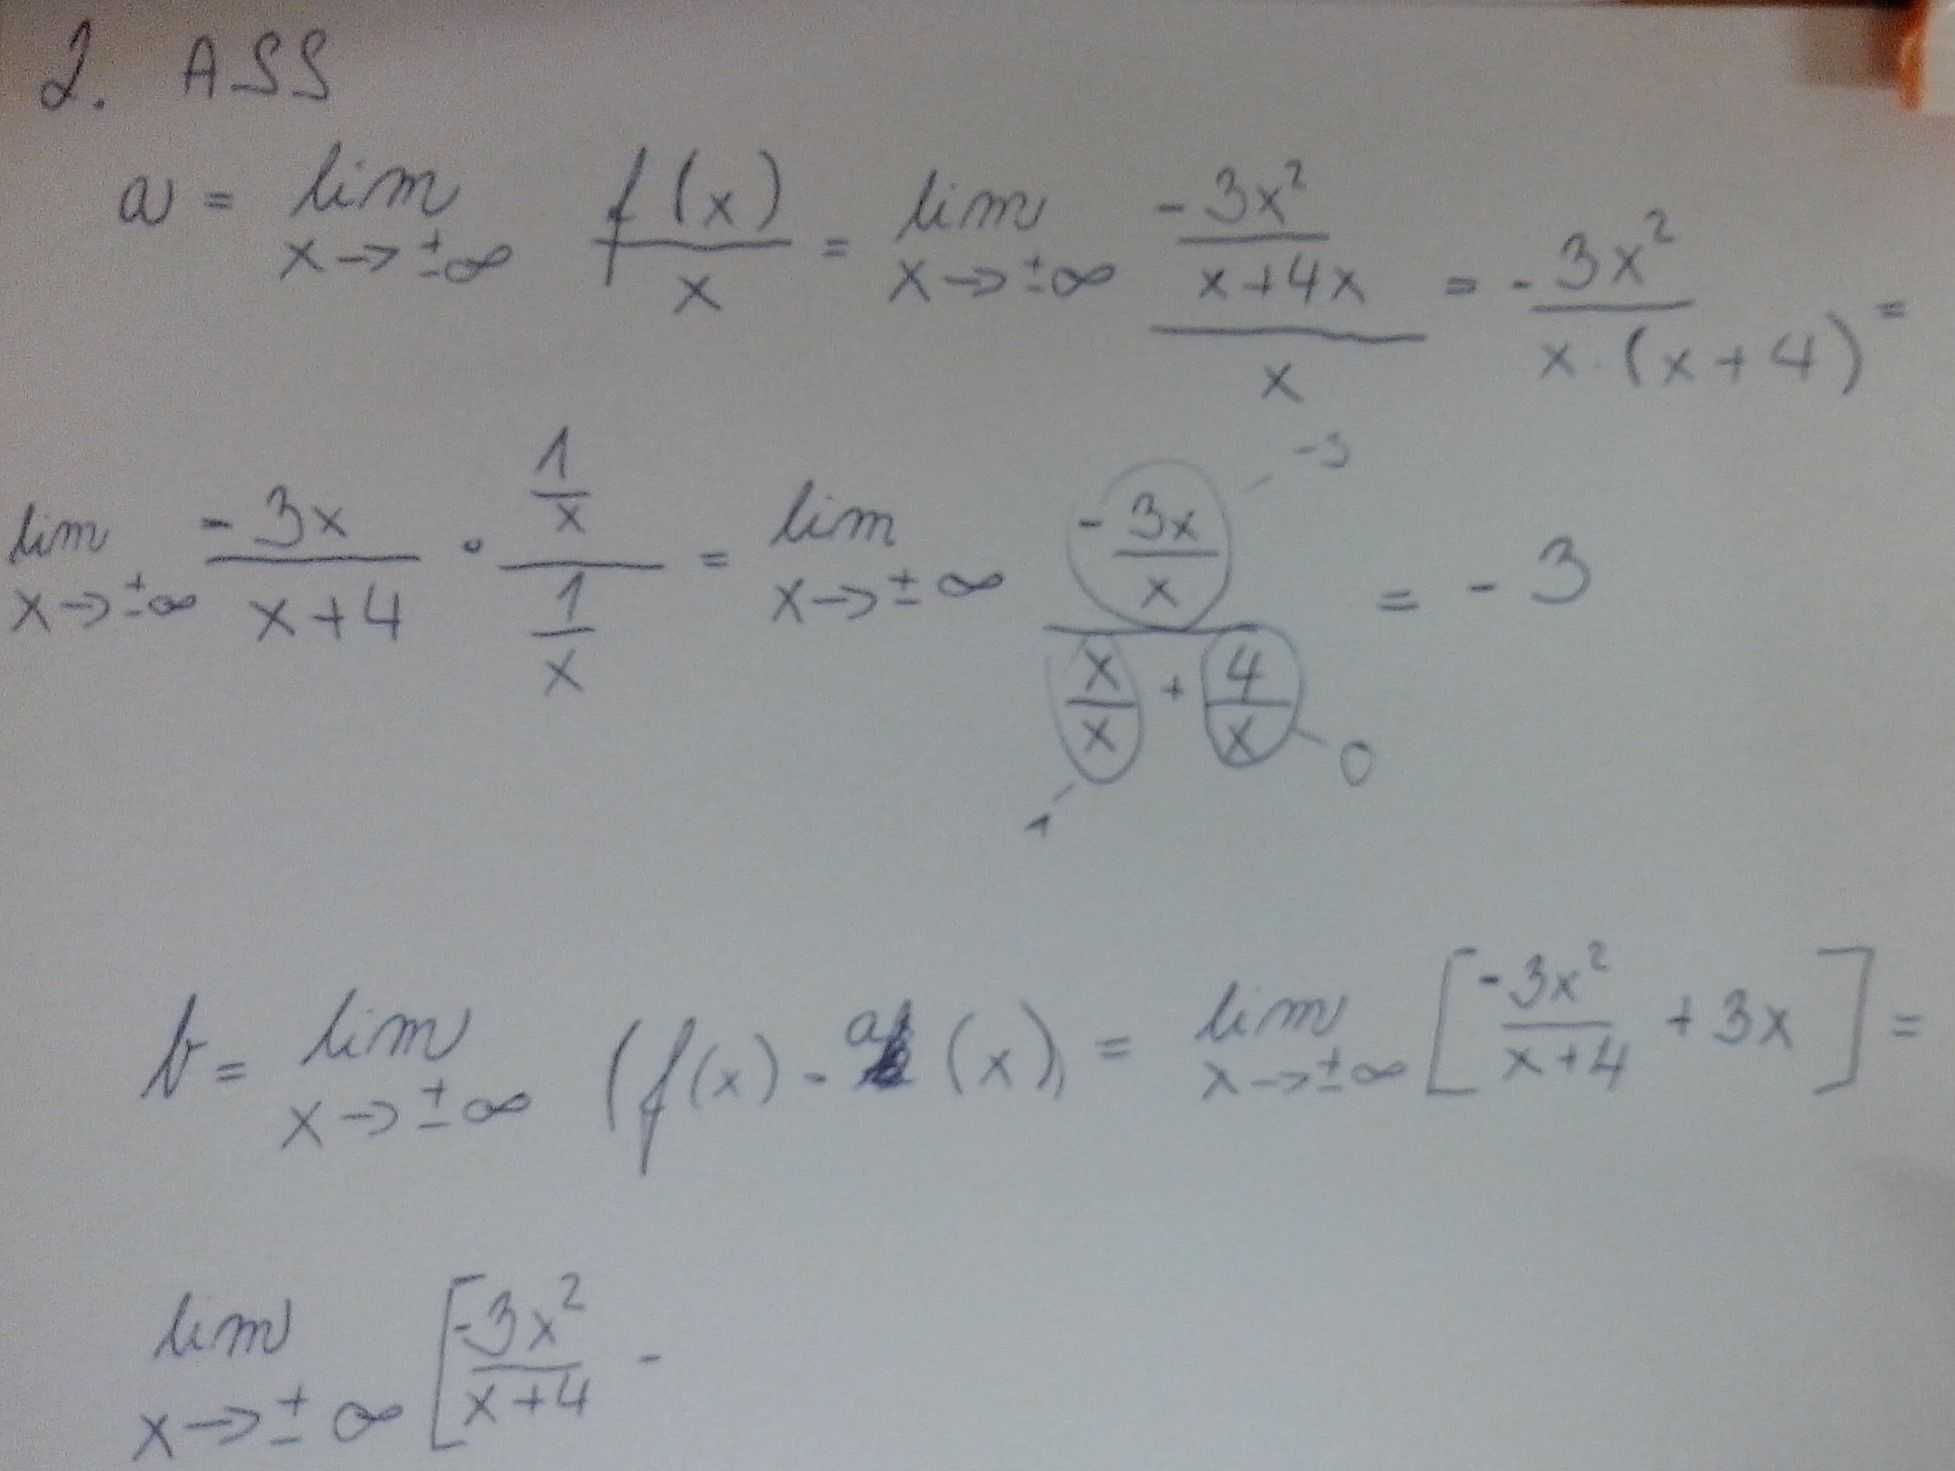 2. ASS
a = lim x→±∞ f(x)/x = lim x→±∞ (-3x²/(x+4x))/x = -3x²/(x·(x+4)) =
lim x→±∞ -3x/(x+4) · (1/x)/(1/x) = lim x→±∞ (-3x/x)/(x/x + 4/x) = -3
-3
1
0
b = lim x→±∞ (f(x) - a(x)) = lim x→±∞ [-3x²/(x+4) + 3x] =
lim x→±∞ [-3x²/(x+4) -